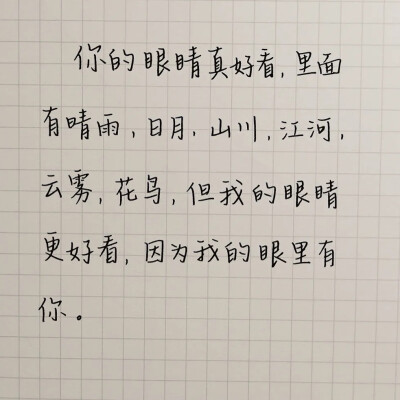 你的眼睛真好看，里面
有晴雨，日月，山川，江河，
云雾，花鸟，但我的眼睛
更好看，因为我的眼里有
你。